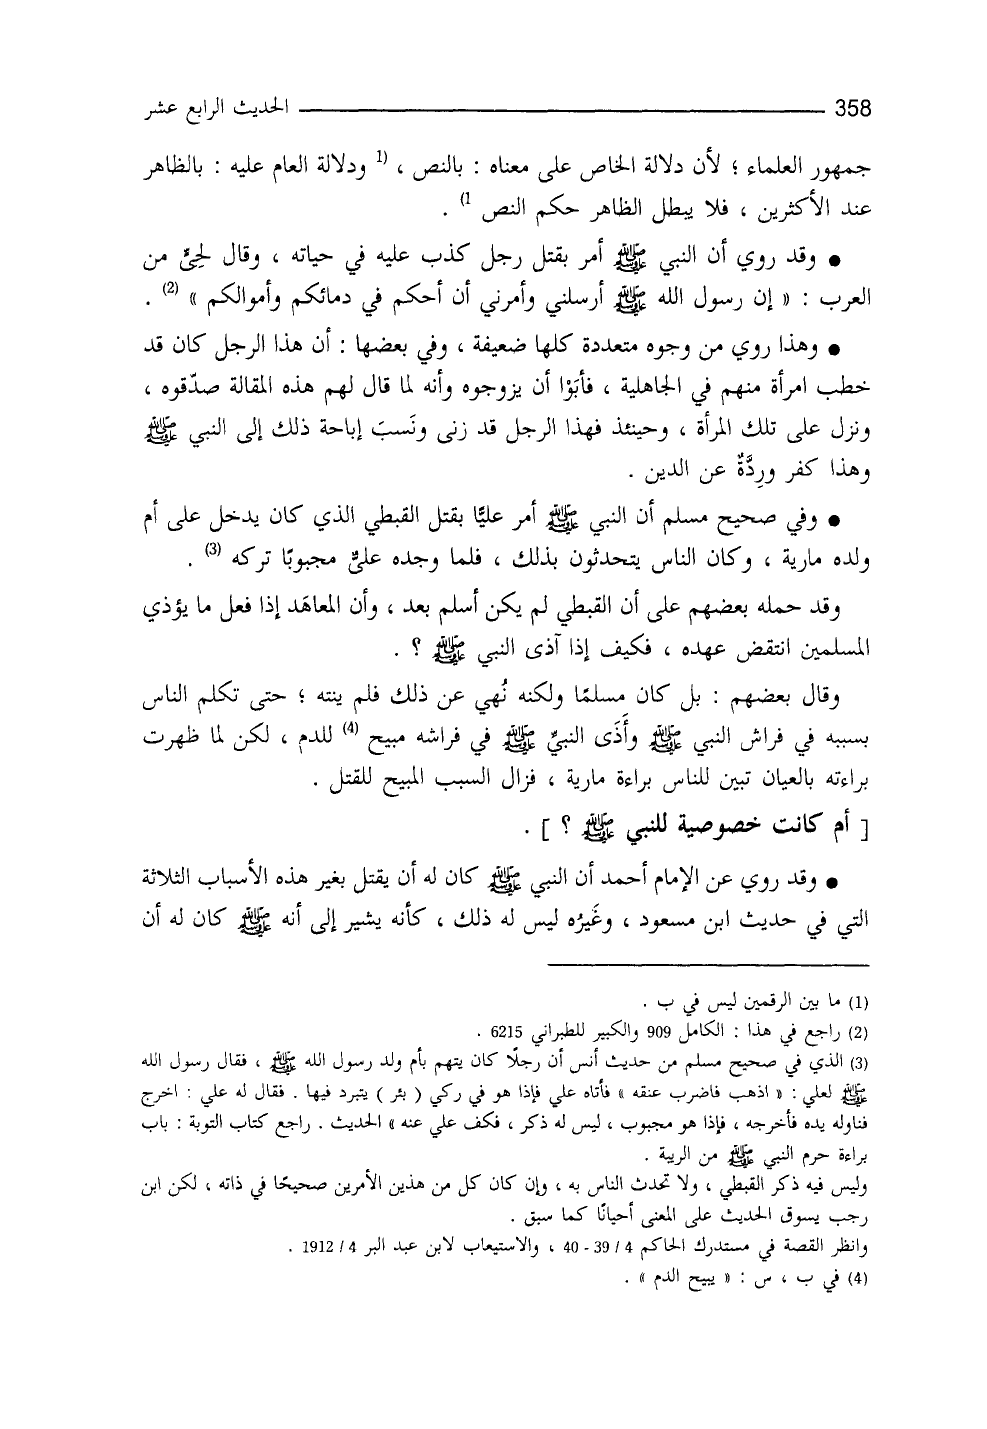 358 الحديث الرابع عشر
جمهور العلماء ؛ لأن دلالة الخاص على معناه : بالنص ، (1 ودلالة العام عليه : بالظاهر
عند الأكثرين ، فلا يبطل الظاهر حكم النص 1) .
● وقد روي أن النبي ﷺ أمر بقتل رجل كذب عليه في حياته ، وقال لحِيٍّ من
العرب : « إن رسول الله ﷺ أرسلني وأمرني أن أحكم في دمائكم وأموالكم » (2) .
● وهذا روي من وجوه متعددة كلها ضعيفة ، وفي بعضها : أن هذا الرجل كان قد
خطب امرأة منهم في الجاهلية ، فأبَوْا أن يزوجوه وأنه لما قال لهم هذه المقالة صدّقوه ،
ونزل على تلك المرأة ، وحينئذ فهذا الرجل قد زنى ونَسبَ إباحة ذلك إلى النبي ﷺ
وهذا كفر ورِدَّةٌ عن الدين .
● وفي صحيح مسلم أن النبي ﷺ أمر عليًّا بقتل القبطي الذي كان يدخل على أم
ولده مارية ، وكان الناس يتحدثون بذلك ، فلما وجده عليٌّ مجبوبًا تركه (3) .
وقد حمله بعضهم على أن القبطي لم يكن أسلم بعد ، وأن المعاهَد إذا فعل ما يؤذي
المسلمين انتقض عهده ، فكيف إذا آذى النبي ﷺ ؟ .
وقال بعضهم : بل كان مسلمًا ولكنه نُهي عن ذلك فلم ينته ؛ حتى تكلم الناس
بسببه في فراش النبي ﷺ وأَذَى النبيِّ ﷺ في فراشه مبيح (4) للدم ، لكن لما ظهرت
براءته بالعيان تبين للناس براءة مارية ، فزال السبب المبيح للقتل .
[ أم كانت خصوصية للنبي ﷺ ؟ ] .
● وقد روي عن الإمام أحمد أن النبي ﷺ كان له أن يقتل بغير هذه الأسباب الثلاثة
التي في حديث ابن مسعود ، وغَيرُه ليس له ذلك ، كأنه يشير إلى أنه ﷺ كان له أن
(1) ما بين الرقمين ليس في ب .
(2) راجع في هذا : الكامل 909 والكبير للطبراني 6215 .
(3) الذي في صحيح مسلم من حديث أنس أن رجلًا كان يتهم بأم ولد رسول الله ﷺ ، فقال رسول الله
ﷺ لعلي : « اذهب فاضرب عنقه » فأتاه علي فإذا هو في ركي ( بئر ) يتبرد فيها . فقال له علي : اخرج
فناوله يده فأخرجه ، فإذا هو مجبوب ، ليس له ذكر ، فكف علي عنه » الحديث . راجع كتاب التوبة : باب
براءة حرم النبي ﷺ من الريبة .
وليس فيه ذكر القبطي ، ولا تحدث الناس به ، وإن كان كل من هذين الأمرين صحيحًا في ذاته ، لكن ابن
رجب يسوق الحديث على المعنى أحيانًا كما سبق .
وانظر القصة في مستدرك الحاكم 4 / 39 - 40 ، والاستيعاب لابن عبد البر 4 / 1912 .
(4) في ب ، س : « يبيح الدم » .